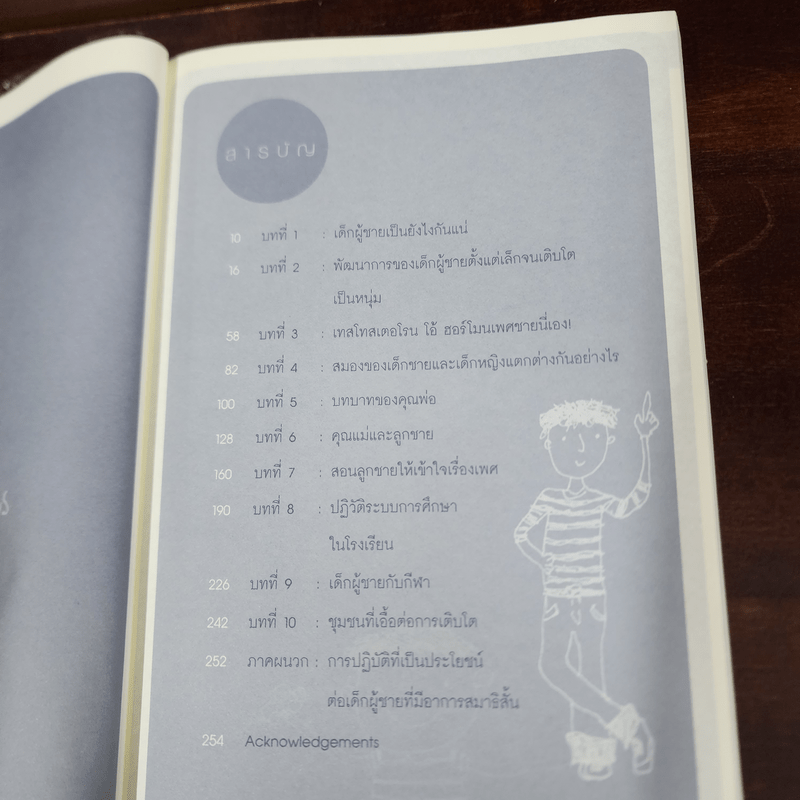 สารบัญ
10 บทที่ 1 : เด็กผู้ชายเป็นยังไงกันแน่
16 บทที่ 2 : พัฒนาการของเด็กผู้ชายตั้งแต่เล็กจนเติบโต
เป็นหนุ่ม
58 บทที่ 3 : เทสโทสเตอโรน โอ้ ฮอร์โมนเพศชายนี่เอง!
82 บทที่ 4 : สมองของเด็กชายและเด็กหญิงแตกต่างกันอย่างไร
100 บทที่ 5 : บทบาทของคุณพ่อ
128 บทที่ 6 : คุณแม่และลูกชาย
160 บทที่ 7 : สอนลูกชายให้เข้าใจเรื่องเพศ
190 บทที่ 8 : ปฏิวัติระบบการศึกษา
ในโรงเรียน
226 บทที่ 9 : เด็กผู้ชายกับกีฬา
242 บทที่ 10 : ชุมชนที่เอื้อต่อการเติบโต
252 ภาคผนวก : การปฏิบัติที่เป็นประโยชน์
ต่อเด็กผู้ชายที่มีอาการสมาธิสั้น
254 Acknowledgements